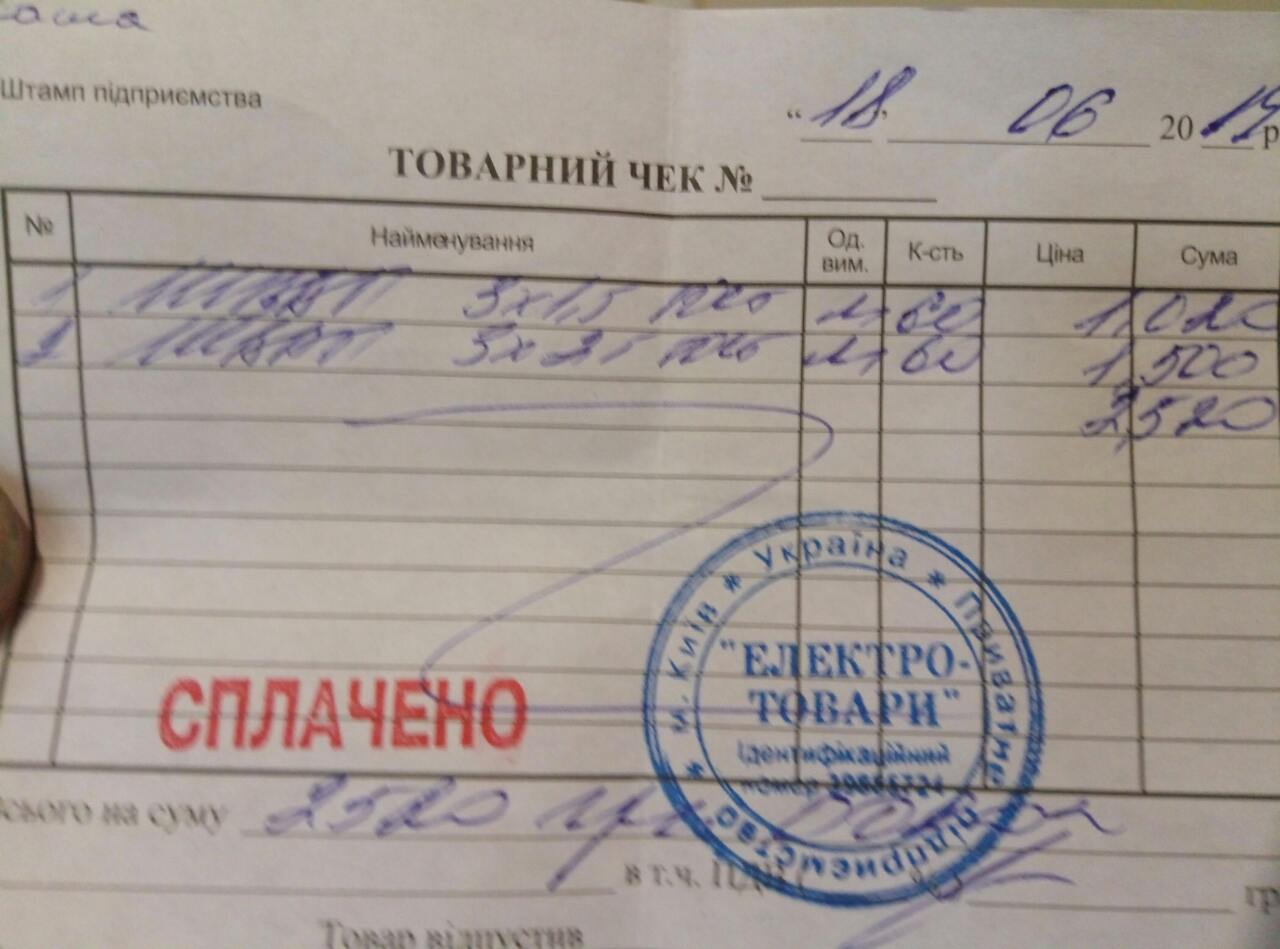 Штамп підприємства
"18" 06 2019 р
ТОВАРНИЙ ЧЕК №
№ Найменування Од. вим. К-сть Ціна Сума
1 ШВВП 3х1,5 м 60 1,020
2 ШВВП 3х2,5 м 60 1,500
2,520
* Україна * Приватне підприємство * м. Київ
"ЕЛЕКТРО-
ТОВАРИ"
Ідентифікаційний
номер
СПЛАЧЕНО
всього на суму 2520 грн
в т.ч. ПДВ гр
Товар відпустив